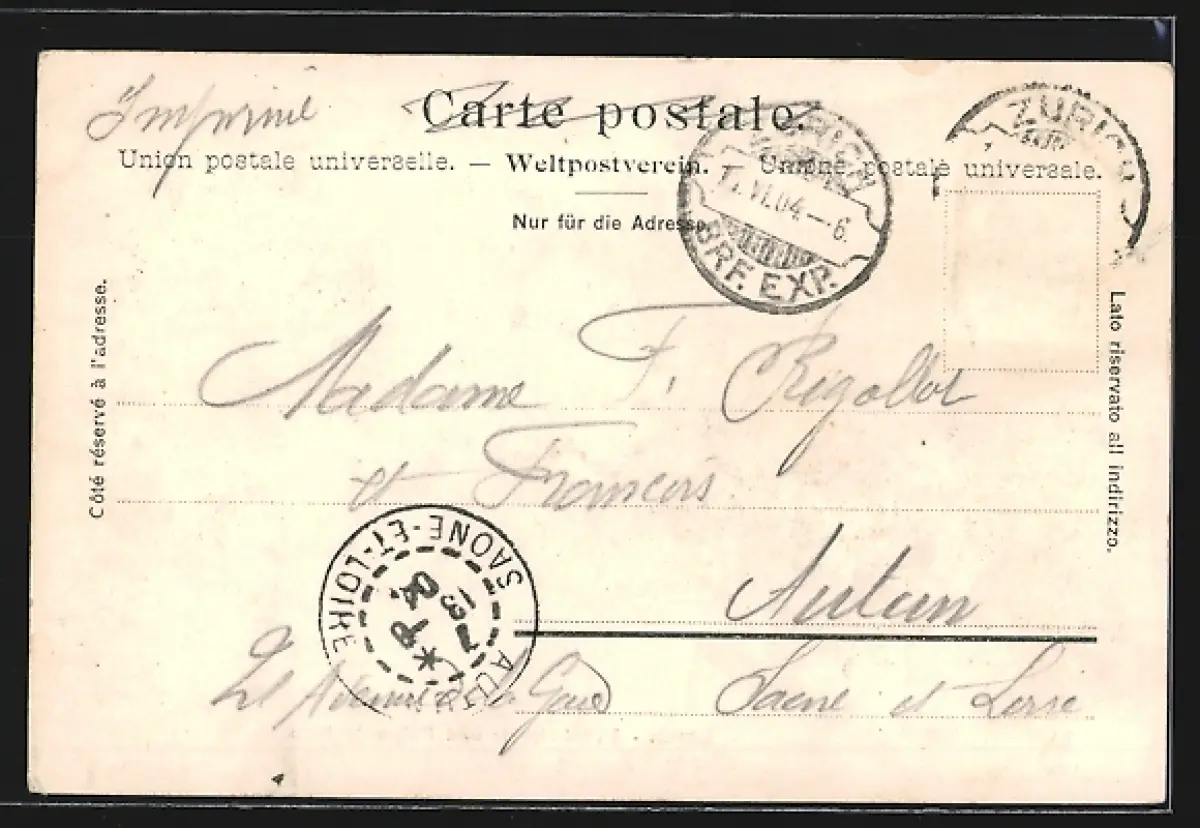 Imprimé
Carte postale.
Union postale universelle. — Weltpostverein. — Unione postale universale.
Nur für die Adresse
Côté réservé à l'adresse.
Lato riservato all indirizzo.
ZÜRICH
VI.04 — 6.
BRF. EXP.
ZÜRICH
Madame F. Rigollot
et François
Autun
Avenue de la Gare
Saône et Loire
SAONE-ET-LOIRE
AU